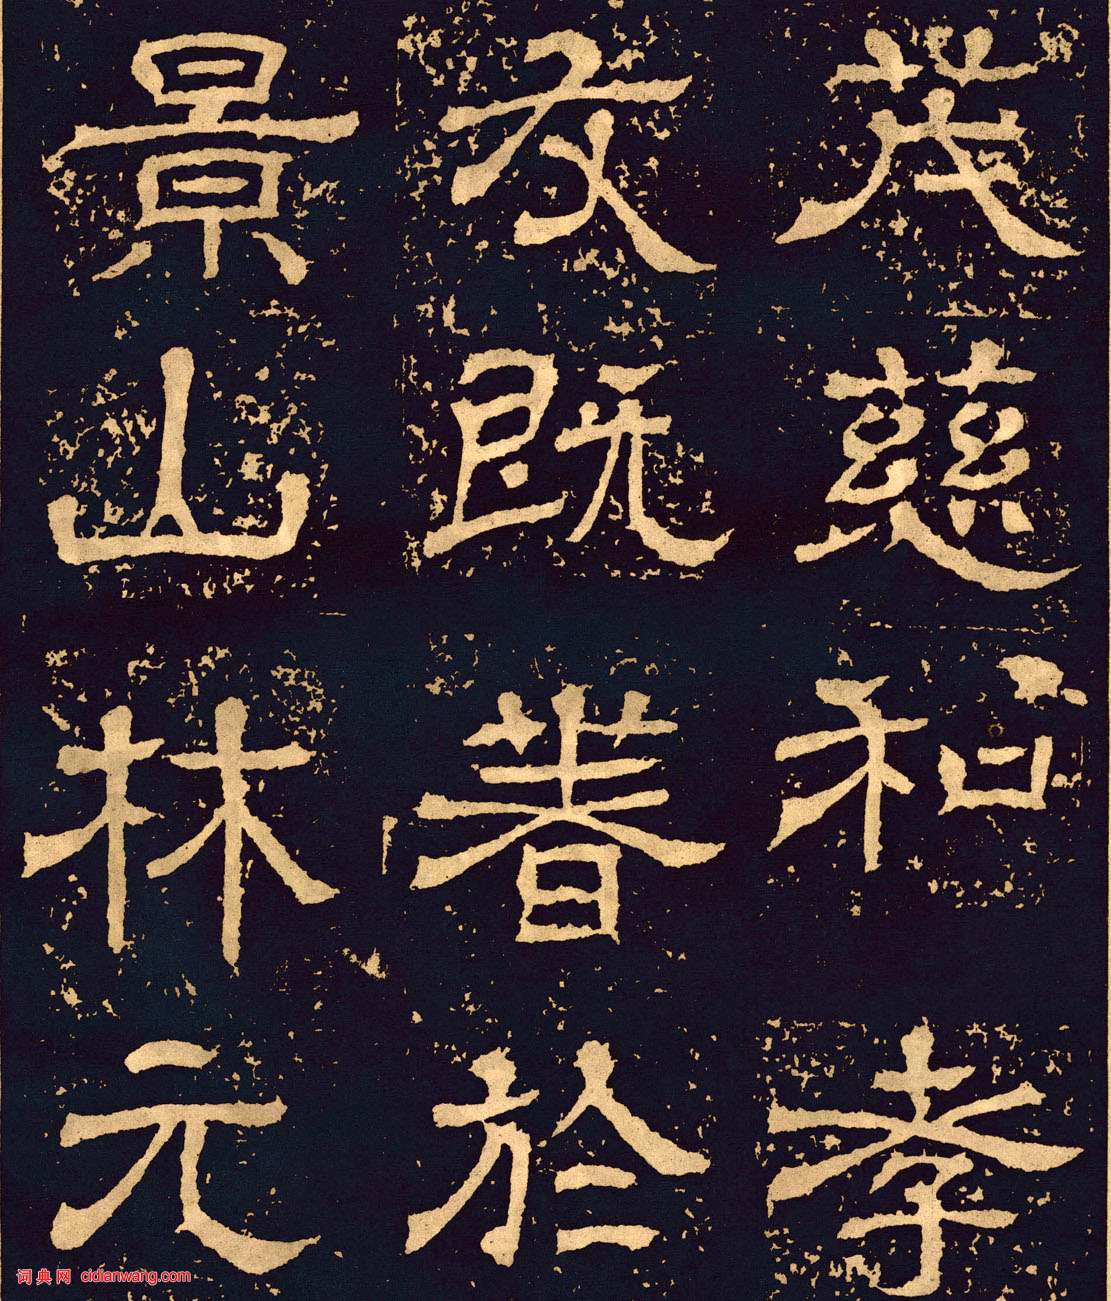 茂慈和孝
友既著於
景山林元
词典网 cidianwang.com